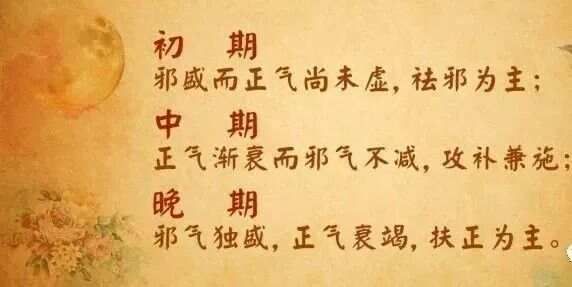 初 期
邪盛而正气尚未虚，祛邪为主；
中 期
正气渐衰而邪气不减，攻补兼施；
晚 期
邪气独盛，正气衰竭，扶正为主。